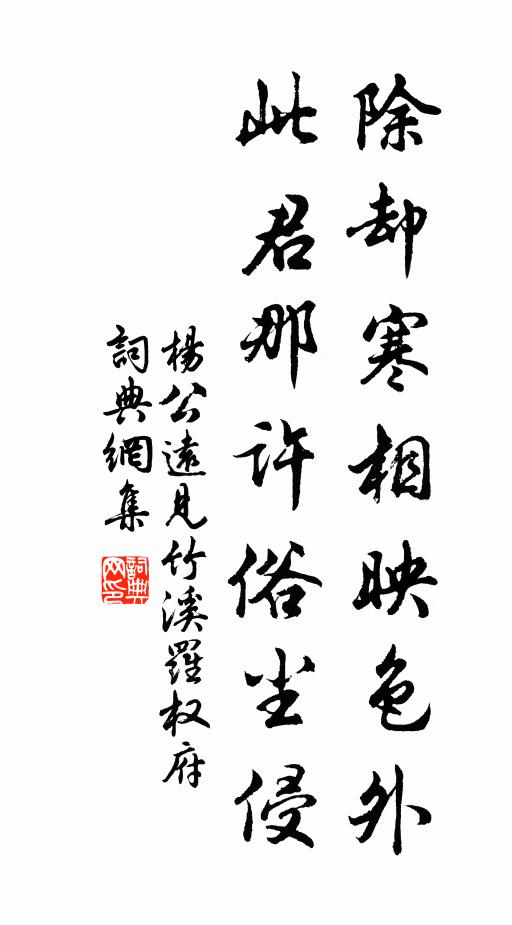 除却寒相映色外
此君那许俗尘侵
楊公遠見竹溪羅权府
詞典網集
詞典网印